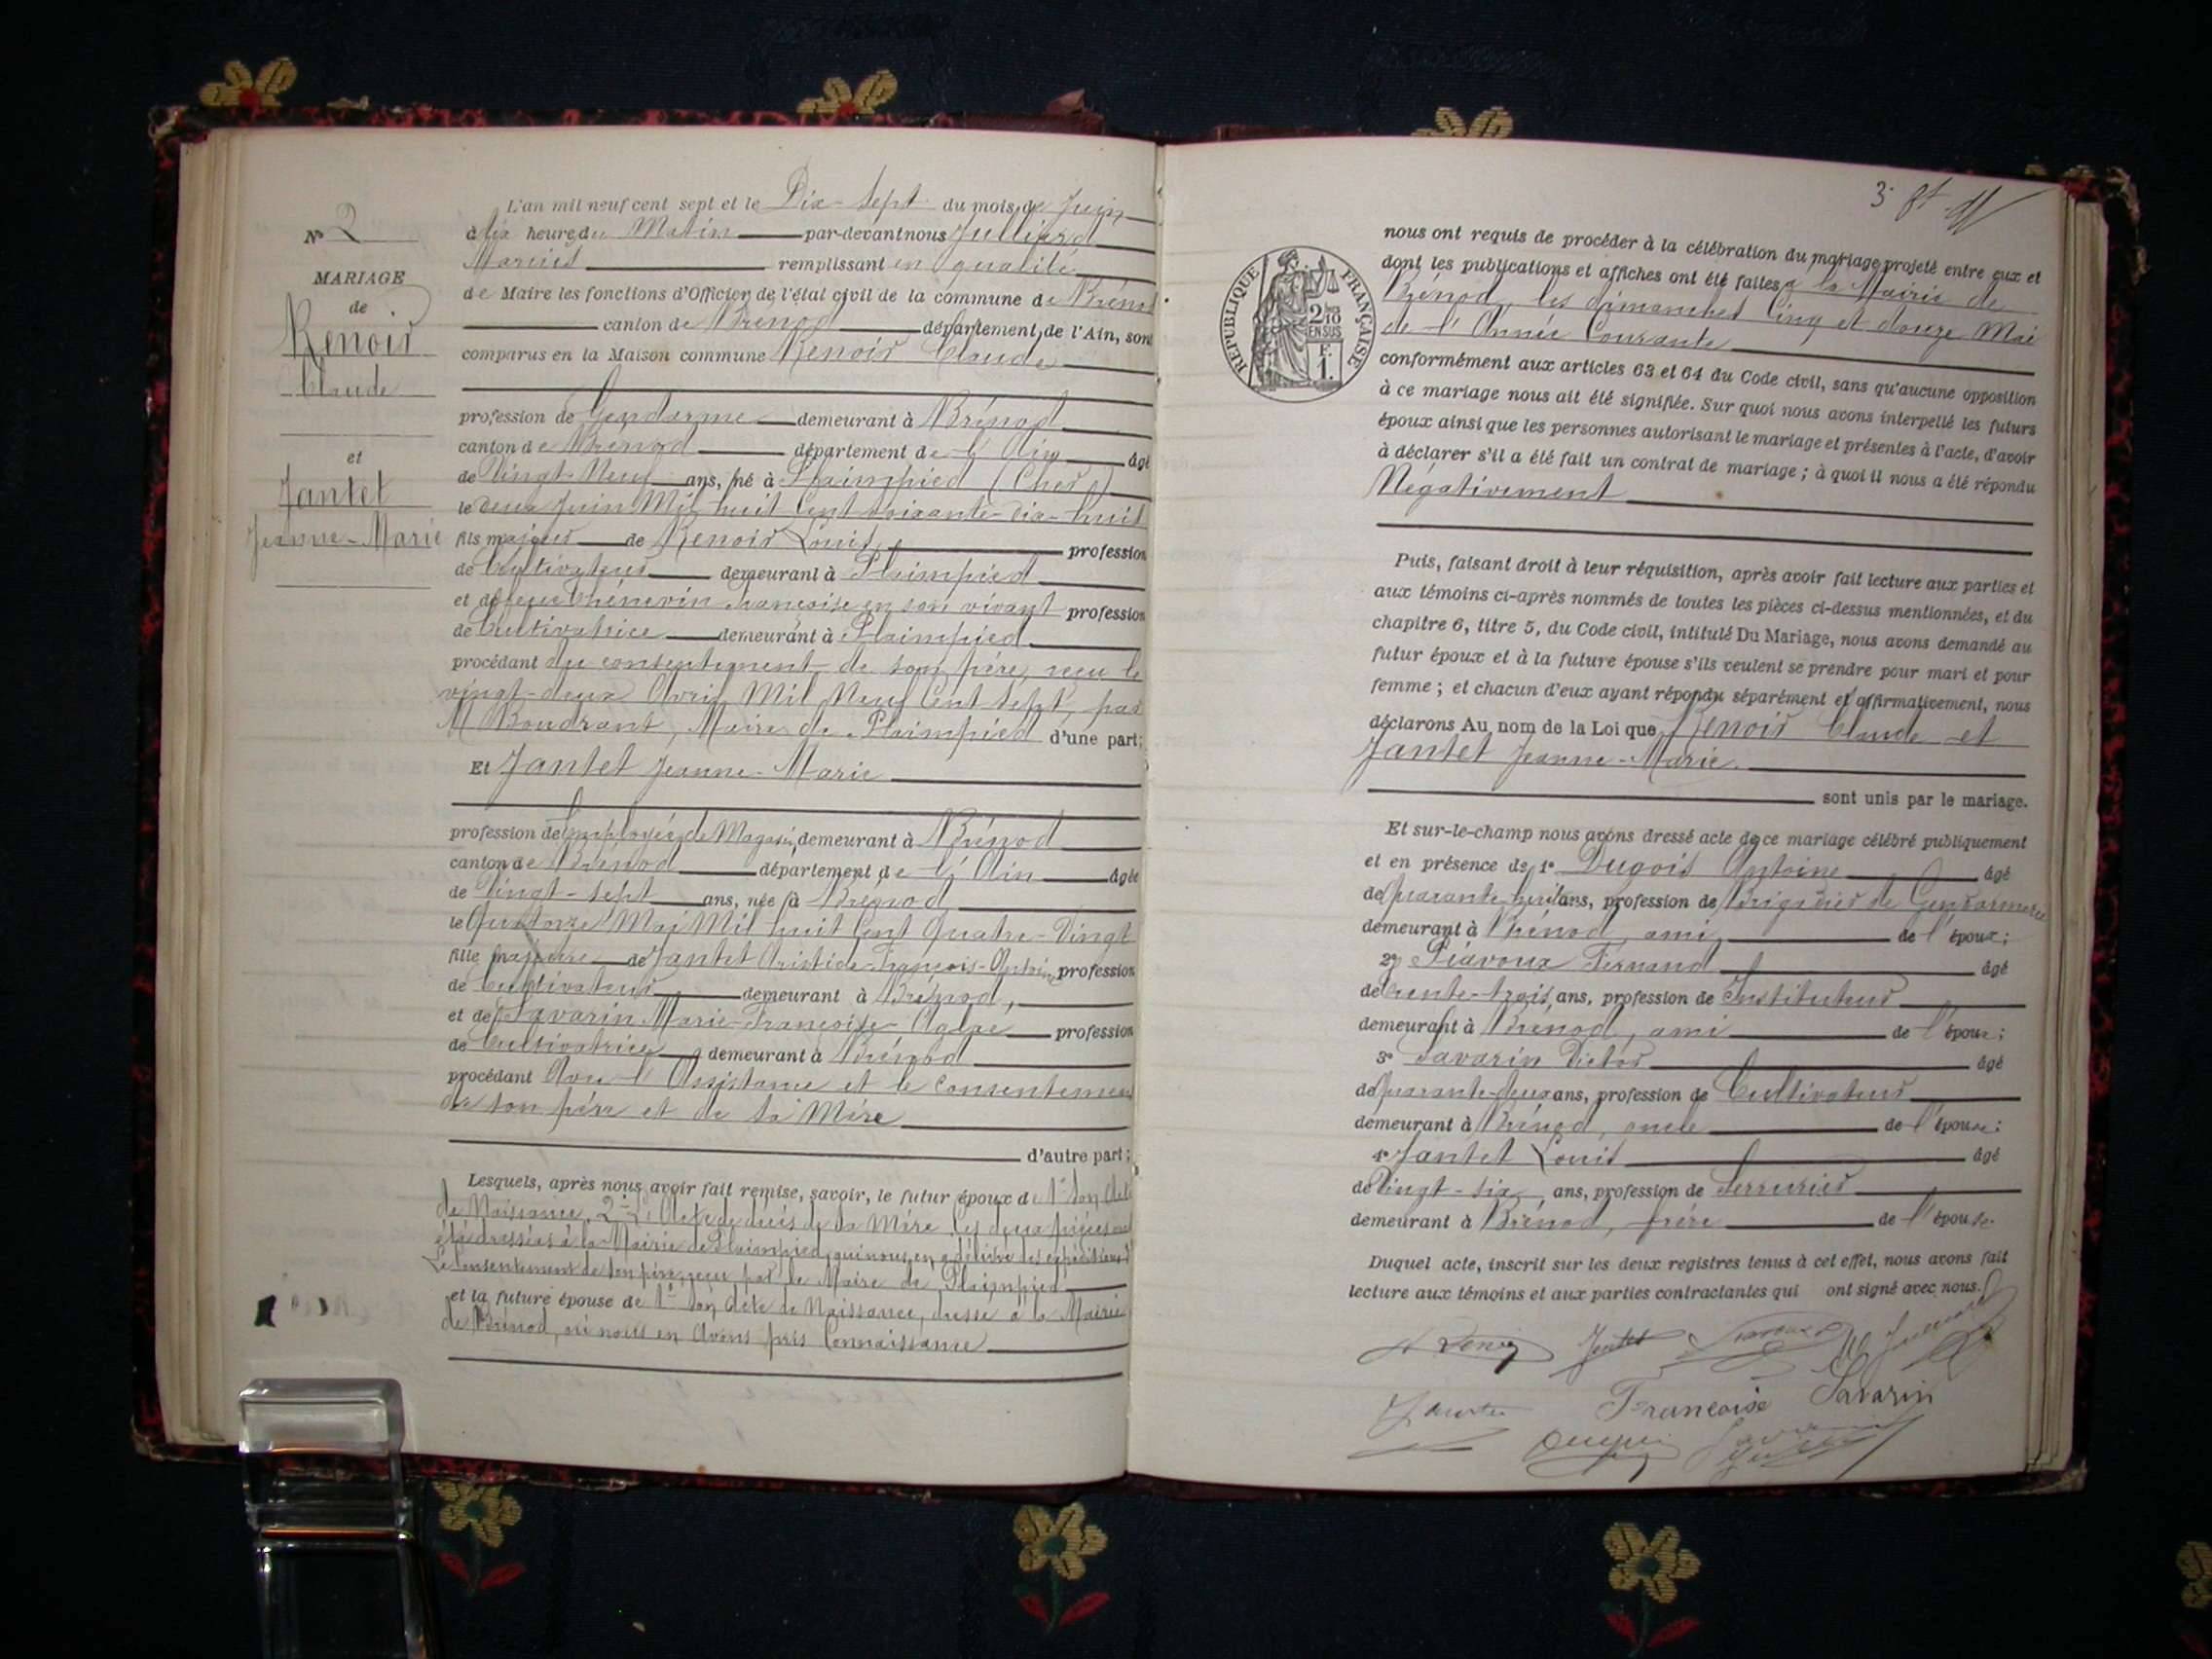 N° 2
MARIAGE
de
Renoir
Claude
et
Jantet
Jeanne-Marie
L'an mil neuf cent sept et le Dix-Sept du mois de Juin
à dix heures du Matin par-devant nous Julliard
Marius remplissant en qualité
de Maire les fonctions d'Officier de l'état civil de la commune de Brénod
canton de Brénod département de l'Ain, sont
comparus en la Maison commune Renoir Claude
profession de Gendarme demeurant à Brénod
canton de Brénod département de l'Ain âgé
de Vingt-Neuf ans, né à Plaimpied (Cher)
le deux Juin Mil huit Cent soixante-dix-huit
fils majeur de Renoir Louis profession
de Cultivateur demeurant à Plaimpied
et de feue Chénevin Françoise en son vivant profession
de Cultivatrice demeurant à Plaimpied
procédant du consentement de son père, reçu le
vingt-deux Avril Mil Neuf Cent Sept, par
M Boudrant, Maire de Plaimpied d'une part;
Et Jantet Jeanne-Marie
profession de Employée de Magasin, demeurant à Brénod
canton de Brénod département de l'Ain âgée
de Vingt-sept ans, née à Brénod
le Quatorze Mai Mil huit Cent Quatre-Vingt
fille majeure de Jantet Aristide-François-Antoine profession
de Cultivateur demeurant à Brénod,
et de Savarin Marie-Françoise-Aglaé profession
de Cultivatrice demeurant à Brénod
procédant Avec l'Assistance et le Consentement
de son père et de sa Mère
d'autre part;
Lesquels, après nous avoir fait remise, savoir, le futur époux de 1° Son Acte
de Naissance, 2° L'Acte de décès de sa Mère. Ces deux pièces ont
été dressées à la Mairie de Plaimpied, qui nous en a délivré les expéditions 3°
Le Consentement de son père, reçu par le Maire de Plaimpied
et la future épouse de 1° Son Acte de Naissance, dressé à la Mairie
de Brénod, où nous en Avons pris Connaissance
3
REPUBLIQUE FRANÇAISE
2/10 EN SUS
F.
1.
nous ont requis de procéder à la célébration du mariage projeté entre eux et
dont les publications et affiches ont été faites à la Mairie de
Brénod, les dimanches Cinq et douze Mai
de l'Année Courante
conformément aux articles 63 et 64 du Code civil, sans qu'aucune opposition
à ce mariage nous ait été signifiée. Sur quoi nous avons interpellé les futurs
époux ainsi que les personnes autorisant le mariage et présentes à l'acte, d'avoir
à déclarer s'il a été fait un contrat de mariage; à quoi il nous a été répondu
Négativement
Puis, faisant droit à leur réquisition, après avoir fait lecture aux parties et
aux témoins ci-après nommés de toutes les pièces ci-dessus mentionnées, et du
chapitre 6, titre 5, du Code civil, intitulé Du Mariage, nous avons demandé au
futur époux et à la future épouse s'ils veulent se prendre pour mari et pour
femme; et chacun d'eux ayant répondu séparément et affirmativement, nous
déclarons Au nom de la Loi que Renoir Claude et
Jantet Jeanne-Marie.
sont unis par le mariage.
Et sur-le-champ nous avons dressé acte de ce mariage célébré publiquement
et en présence de 1° Dugois Antoine âgé
de quarante-huit ans, profession de Brigadier de Gendarmerie
demeurant à Brénod, ami de l'époux;
2° Piavoux Fernand âgé
de trente-trois ans, profession de Instituteur
demeurant à Brénod, ami de l'époux;
3° Savarin Victor âgé
de quarante-deux ans, profession de Cultivateur
demeurant à Brénod, oncle de l'épouse;
4° Jantet Louis âgé
de Vingt-six ans, profession de Serrurier
demeurant à Brénod, frère de l'épouse.
Duquel acte, inscrit sur les deux registres tenus à cet effet, nous avons fait
lecture aux témoins et aux parties contractantes qui ont signé avec nous.
Renoir Jantet Julliard
Jantet Françoise Savarin